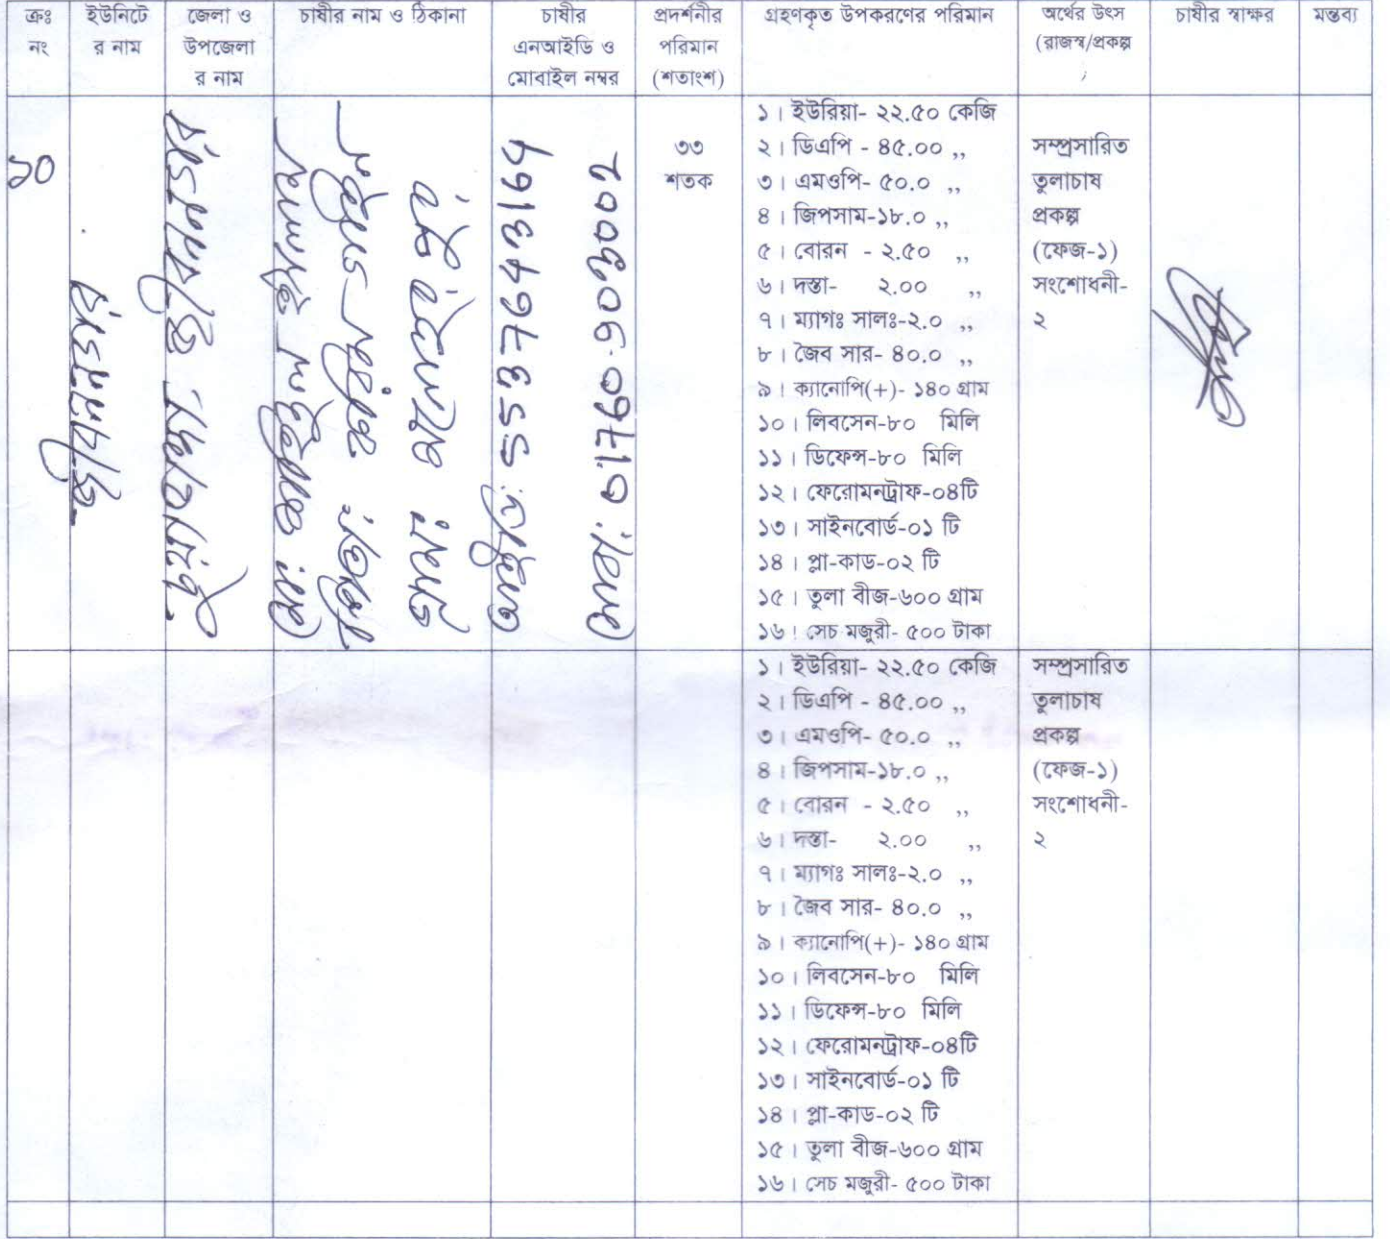 ক্রঃ নং | ইউনিটে র নাম | জেলা ও উপজেলা র নাম | চাষীর নাম ও ঠিকানা | চাষীর এনআইডি ও মোবাইল নম্বর | প্রদর্শনীর পরিমান (শতাংশ) | গ্রহণকৃত উপকরণের পরিমান | অর্থের উৎস (রাজস্ব/প্রকল্প ) | চাষীর স্বাক্ষর | মন্তব্য
১০
জীবননগর
চুয়াডাঙ্গা, জীবননগর
মো:
পিতা:
গ্রাম: মনোহরপুর,
আইডি: 5537643164
মোবা:
৩৩
শতক
১। ইউরিয়া- ২২.৫০ কেজি
২। ডিএপি - ৪৫.০০ ,,
৩। এমওপি- ৫০.০ ,,
৪। জিপসাম-১৮.০ ,,
৫। বোরন - ২.৫০ ,,
৬। দস্তা- ২.০০ ,,
৭। ম্যাগঃ সালঃ-২.০ ,,
৮। জৈব সার- ৪০.০ ,,
৯। ক্যানোপি(+)- ১৪০ গ্রাম
১০। লিবসেন-৮০ মিলি
১১। ডিফেন্স-৮০ মিলি
১২। ফেরোমনট্রাফ-০৪টি
১৩। সাইনবোর্ড-০১ টি
১৪। প্লা-কাড-০২ টি
১৫। তুলা বীজ-৬০০ গ্রাম
১৬। সেচ মজুরী- ৫০০ টাকা
সম্প্রসারিত
তুলাচাষ
প্রকল্প
(ফেজ-১)
সংশোধনী-
২
১। ইউরিয়া- ২২.৫০ কেজি
২। ডিএপি - ৪৫.০০ ,,
৩। এমওপি- ৫০.০ ,,
৪। জিপসাম-১৮.০ ,,
৫। বোরন - ২.৫০ ,,
৬। দস্তা- ২.০০ ,,
৭। ম্যাগঃ সালঃ-২.০ ,,
৮। জৈব সার- ৪০.০ ,,
৯। ক্যানোপি(+)- ১৪০ গ্রাম
১০। লিবসেন-৮০ মিলি
১১। ডিফেন্স-৮০ মিলি
১২। ফেরোমনট্রাফ-০৪টি
১৩। সাইনবোর্ড-০১ টি
১৪। প্লা-কাড-০২ টি
১৫। তুলা বীজ-৬০০ গ্রাম
১৬। সেচ মজুরী- ৫০০ টাকা
সম্প্রসারিত
তুলাচাষ
প্রকল্প
(ফেজ-১)
সংশোধনী-
২